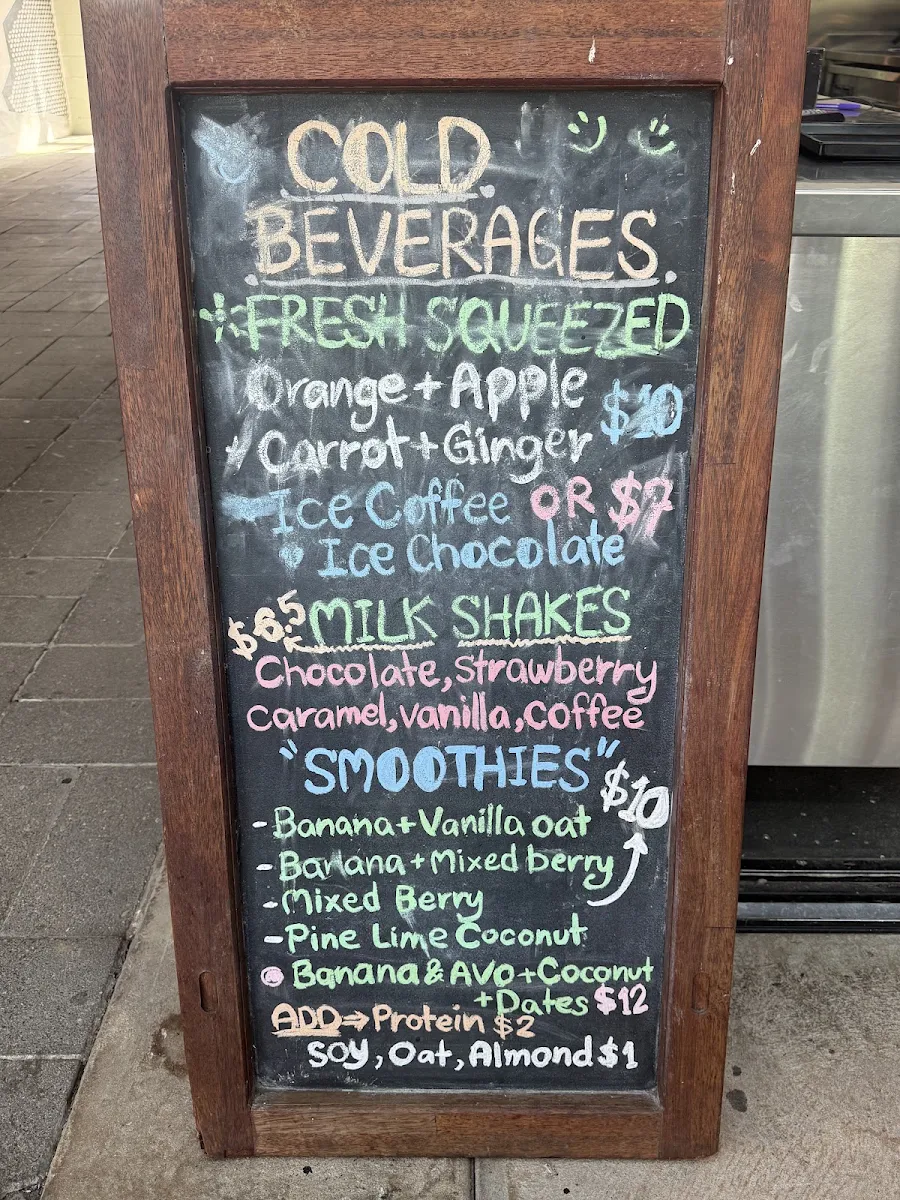 COLD
BEVERAGES
FRESH SQUEEZED
Orange + Apple
Carrot + Ginger $10
Ice Coffee OR $7
Ice Chocolate
$6.5 MILK SHAKES
Chocolate, Strawberry
Caramel, vanilla, coffee
"SMOOTHIES"
$10
- Banana + Vanilla oat
- Banana + Mixed berry
- Mixed Berry
- Pine Lime Coconut
Banana & Avo + Coconut
+ Dates $12
ADD ⇒ Protein $2
Soy, Oat, Almond $1